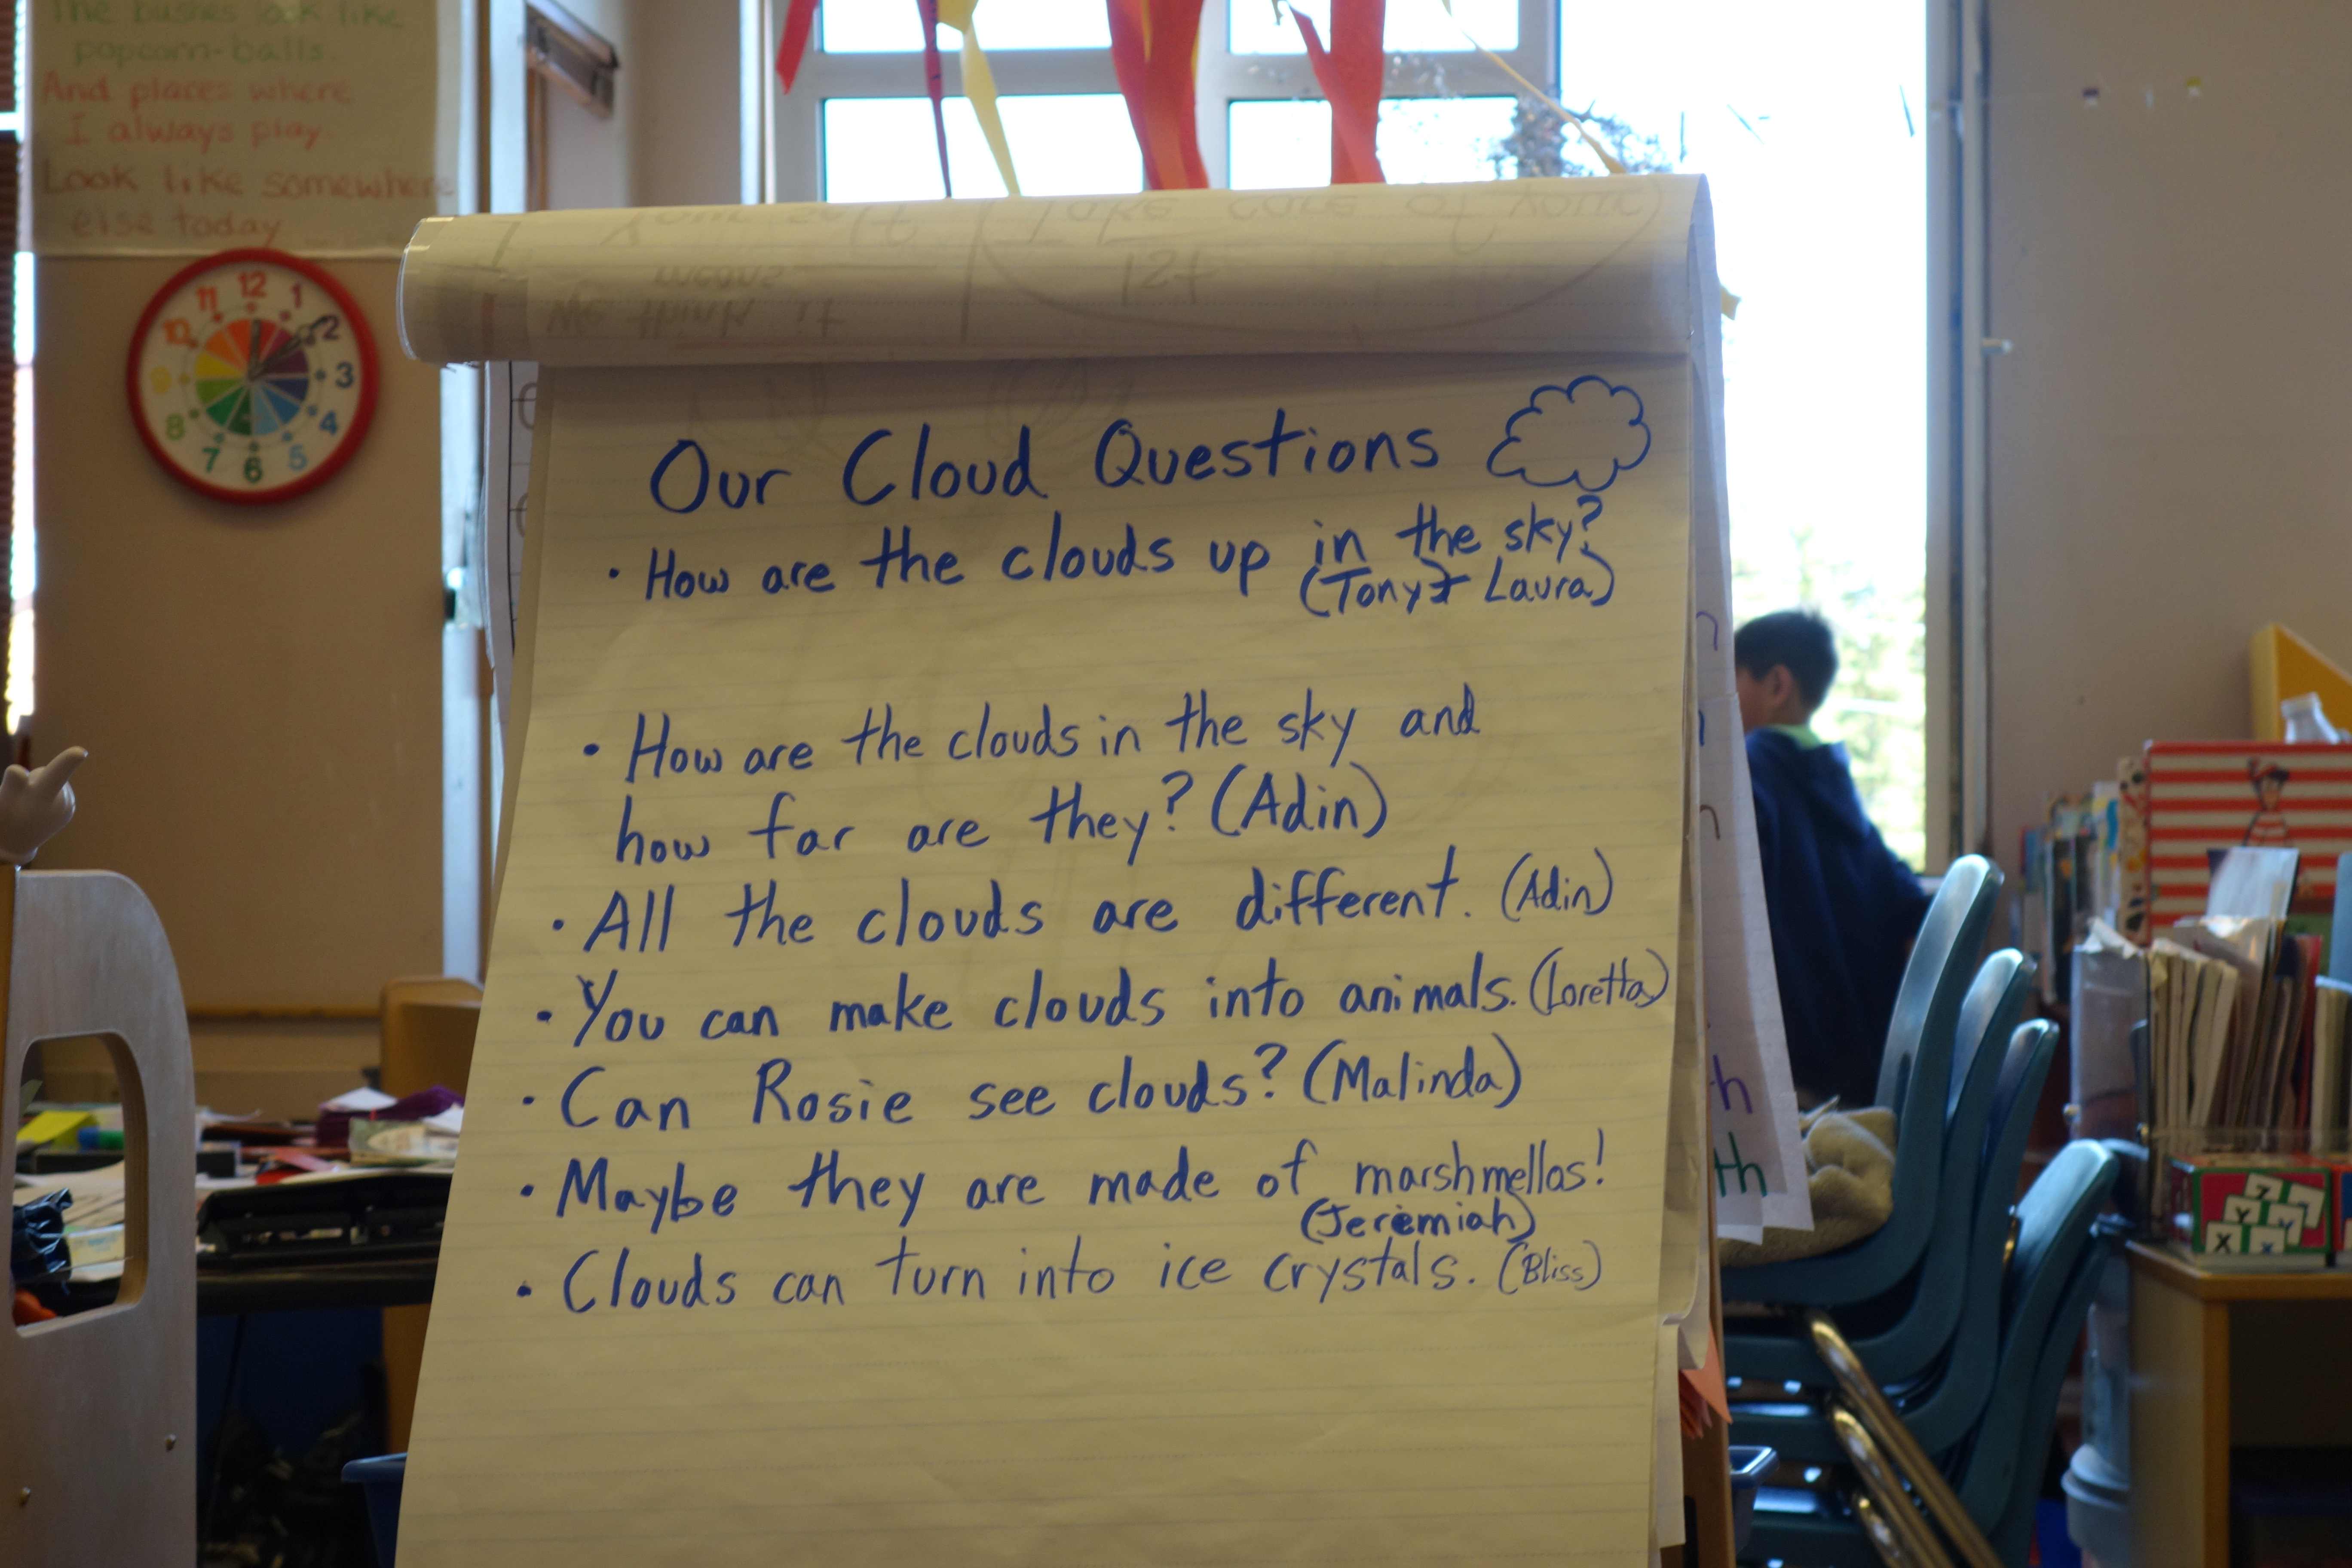 The bushes look like
popcorn-balls.
And places where
I always play
Look like somewhere
else today
12
1
2
3
4
5
6
7
8
9
10
11
Your self
Take care of your
means
1st
We think it
Our Cloud Questions
• How are the clouds up in the sky?
(Tony + Laura)
• How are the clouds in the sky and
how far are they? (Adin)
• All the clouds are different. (Adin)
• You can make clouds into animals. (Loretta)
• Can Rosie see clouds? (Malinda)
• Maybe they are made of marshmellos!
(Jeremiah)
• Clouds can turn into ice crystals. (Bliss)
th
Y
Y
X
X